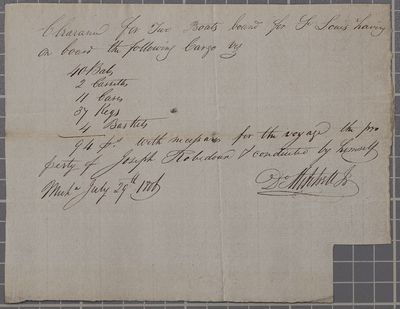 Clearance for Two Boats bound for St Louis having
on board the following Cargo viz
40 Bals
2 Cassettes
11 Cases
37 Kegs
4 Baskets
94 ps with necessaries for the voyage the pro
perty of Joseph Robidoux & conducted by himself
Mich.a July 29th
Dd Mitchell Jr